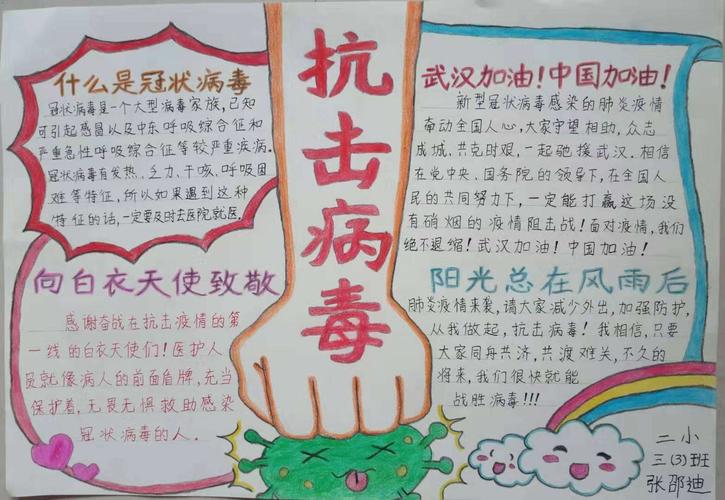 抗击病毒
什么是冠状病毒
冠状病毒是一个大型病毒家族,已知
可引起感冒以及中东呼吸综合征和
严重急性呼吸综合征等较严重疾病。
冠状病毒有发热、乏力、干咳、呼吸困
难等特征,所以如果遇到这种
特征的话,一定要及时去医院就医。
向白衣天使致敬
感谢奋战在抗击疫情的第
一线的白衣天使们!医护人
员就像病人的前面盾牌,充当
保护着,无畏无惧救助感染
冠状病毒的人。
武汉加油!中国加油!
新型冠状病毒感染的肺炎疫情
牵动全国人心,大家守望相助,众志
成城,共克时艰,一起驰援武汉.相信
在党中央、国务院的领导下,在全国人
民的共同努力下,一定能打赢这场没
有硝烟的疫情阻击战!面对疫情,我们
绝不退缩!武汉加油!中国加油!
阳光总在风雨后
肺炎疫情来袭,请大家减少外出,加强防护,
从我做起,抗击病毒!我相信,只要
大家同舟共济,共渡难关,不久的
将来,我们很快就能
战胜病毒!!!
二小
三(3)班
张邵迪